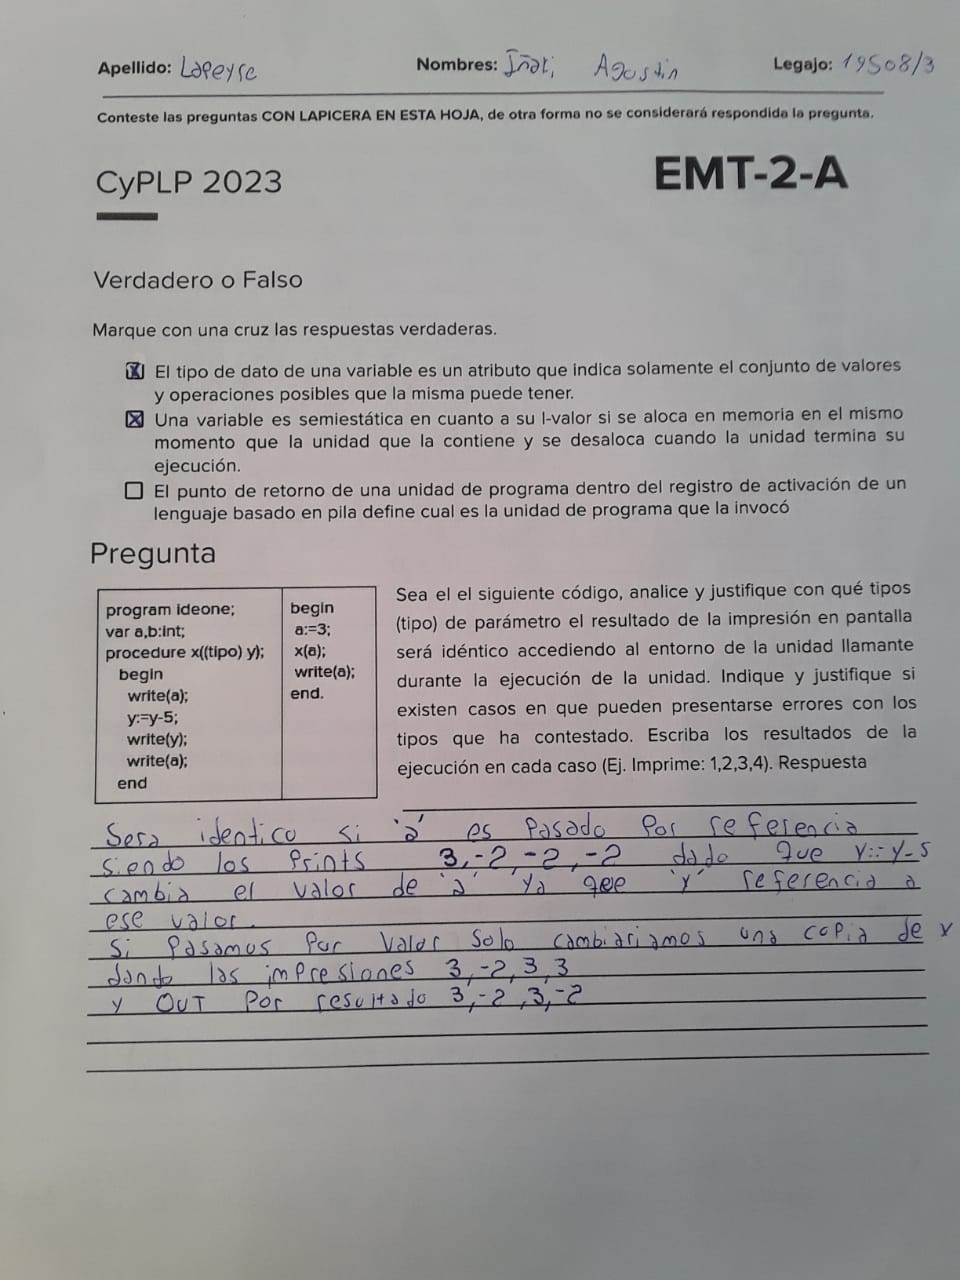 Apellido: Lapeyre Nombres: Iñaki Agustin Legajo: 19508/3
Conteste las preguntas CON LAPICERA EN ESTA HOJA, de otra forma no se considerará respondida la pregunta.
CyPLP 2023 EMT-2-A
Verdadero o Falso
Marque con una cruz las respuestas verdaderas.
El tipo de dato de una variable es un atributo que indica solamente el conjunto de valores
y operaciones posibles que la misma puede tener.
Una variable es semiestática en cuanto a su l-valor si se aloca en memoria en el mismo
momento que la unidad que la contiene y se desaloca cuando la unidad termina su
ejecución.
El punto de retorno de una unidad de programa dentro del registro de activación de un
lenguaje basado en pila define cual es la unidad de programa que la invocó
Pregunta
program ideone;
var a,b:int;
procedure x((tipo) y);
begin
write(a);
y:=y-5;
write(y);
write(a);
end
begin
a:=3;
x(a);
write(a);
end.
Sea el el siguiente código, analice y justifique con qué tipos
(tipo) de parámetro el resultado de la impresión en pantalla
será idéntico accediendo al entorno de la unidad llamante
durante la ejecución de la unidad. Indique y justifique si
existen casos en que pueden presentarse errores con los
tipos que ha contestado. Escriba los resultados de la
ejecución en cada caso (Ej. Imprime: 1,2,3,4). Respuesta
Sera identico si 'a' es pasado por referencia
siendo los prints 3,-2,-2,-2 dado que y:=y-5
cambia el valor de 'a' ya que 'y' referencia a
ese valor.
Si pasamos por valor solo cambiariamos una copia de y
dando las impresiones 3,-2,3,3
y OUT por resultado 3,-2,3,-2